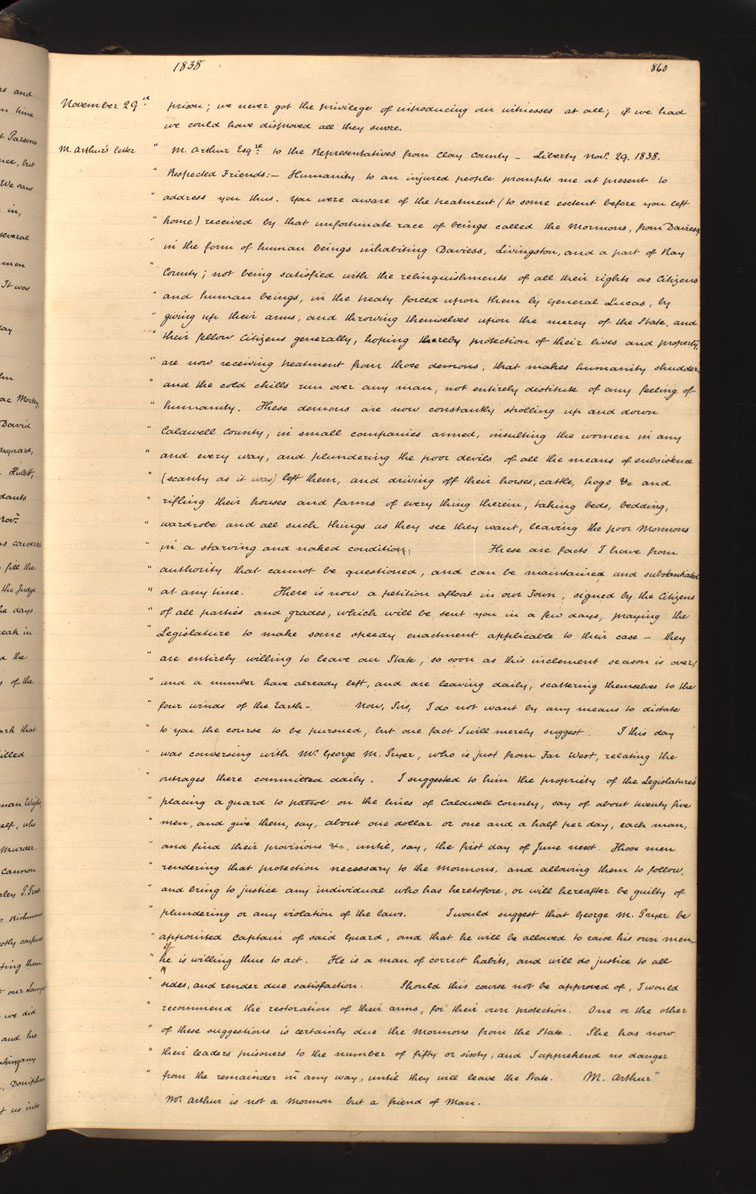 1838
860
November 29th prison; we never got the privilege of introducing our witnesses at all; if we had
we could have disproved all they swore.
M. Arthur's letter " M. Arthur Esqre. to the Representatives from Clay County – Liberty Novr. 29. 1838.
" Respected Friends:– Humanity to an injured people prompts me at present to
" address you thus. You were aware of the treatment (to some extent before you left
" home) received by that unfortunate race of beings called the Mormons, from Daviess,
" in the form of human beings inhabiting Daviess, Livingston, and a part of Ray
" County; not being satisfied with the relinquishments of all their rights as Citizens
" and human beings, in the treaty forced upon them by General Lucas, by
" giving up their arms, and throwing themselves upon the mercy of the State, and
" their fellow Citizens generally, hoping thereby protection of their lives and property,
" are now receiving treatment from those demons, that makes humanity shudder
" and the cold chills run over any man, not entirely destitute of any feeling of
" humanity. These demons are now constantly strolling up and down
" Caldwell County, in small companies armed, insulting the women in any
" and every way, and plundering the poor devils of all the means of subsistence
" (scanty as it was) left them, and driving off their horses, cattle, hogs &c and
" rifling their houses and farms of every thing therein, taking beds, bedding,
" wardrobe and all such things as they see they want, leaving the poor Mormons
" in a starving and naked condition; These are facts I have from
" authority that cannot be questioned, and can be maintained and substantiated
" at any time. There is now a petition afloat in our Town, signed by the Citizens
" of all parties and grades, which will be sent you in a few days, praying the
" Legislature to make some speedy enactment applicable to their case – they
" are entirely willing to leave our State, so soon as this inclement season is over,
" and a number have already left, and are leaving daily, scattering themselves to the
" four winds of the Earth – Now, Sirs, I do not want by any means to dictate
" to you the course to be pursued, but one fact I will merely suggest. I this day
" was conversing with Mr. George M. Pryer, who is just from Far West, relating the
" outrages there committed daily. I suggested to him the propriety of the Legislature's
" placing a guard to patrol on the lines of Caldwell County, say of about twenty five
" men, and give them, say, about one dollar or one and a half per day, each man,
" and find their provisions &c. until, say, the first day of June next. Those men
" rendering that protection necessary to the Mormons, and allowing them to follow,
" and bring to justice any individual who has heretofore, or will hereafter be guilty of
" plundering or any violation of the laws. I would suggest that George M. Pryer be
" appointed Captain of said Guard, and that he will be allowed to raise his own men
" if he is willing thus to act. He is a man of correct habits, and will do justice to all
" sides, and render due satisfaction. Should this course not be approved of, I would
" recommend the restoration of their arms, for their own protection. One or the other
" of these suggestions is certainly due the Mormons from the State. She has now
" their leaders prisoners to the number of fifty or sixty, and I apprehend no danger
" from the remainder in any way, until they will leave the State. M. Arthur"
Mr. Arthur is not a Mormon but a friend of Man.